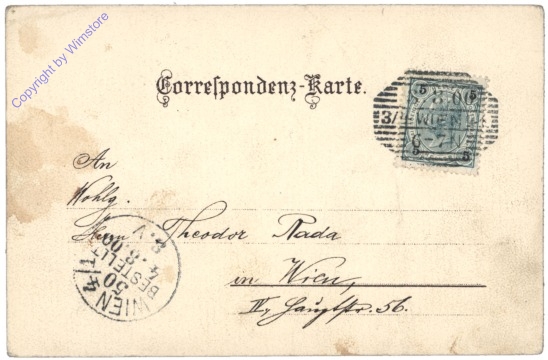 Copyright by Wimstore
Correspondenz-Karte.
5 5
8.00
3/1 WIEN
5 5
An
Wohlg.
Herrn Theodor Rada
in Wien,
II, Hauptstr. 56.
WIEN 4/1
50
BESTELLT
4.8.00
8.V